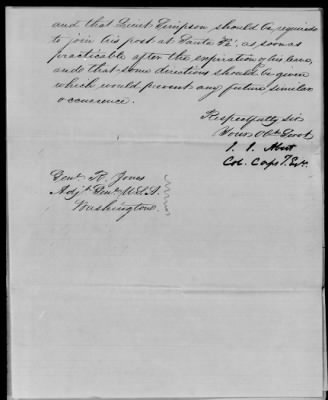 and that Lieut Simpson should be required
to join his post at Santa Fé. as soon as
practicable after the expiration of his leave,
and that some directions should be given
which would prevent any future similar
occurrence.
Respectfully Sir
Your Obt Servt
J. J. Abert
Col. Corps T. Eng.
Genl. R. Jones
Adjt. Genl. U.S.A.
Washington